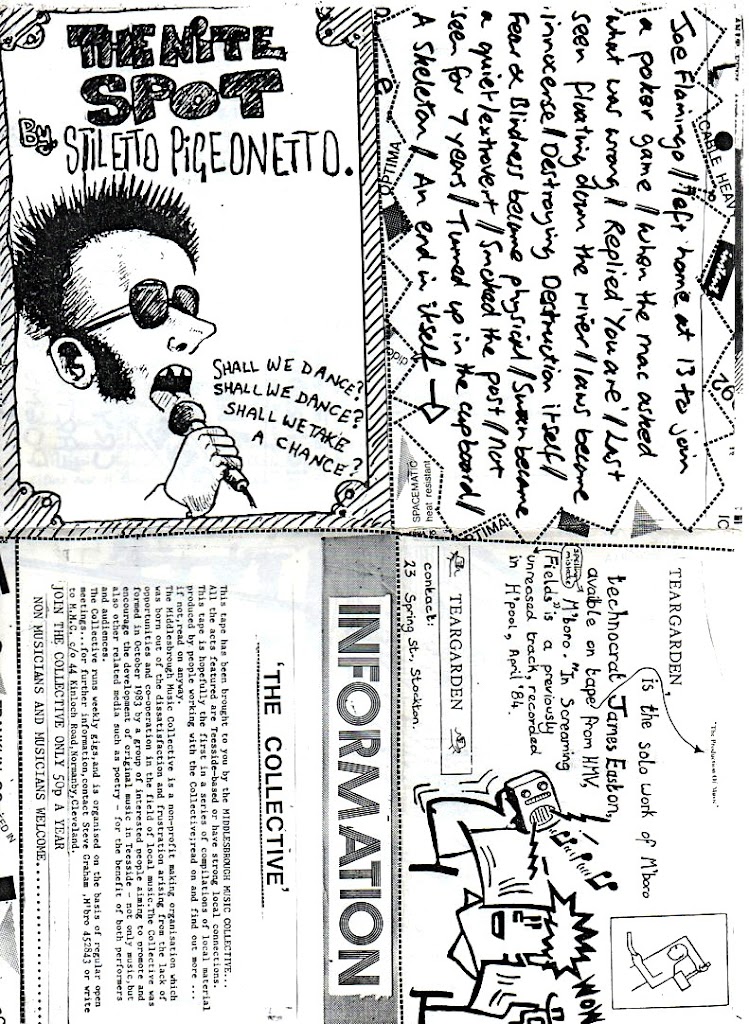 THE NITE
SPOT
By STILETTO PIGEONETTO.
SHALL WE DANCE?
SHALL WE DANCE?
SHALL WE TAKE
A CHANCE?
Joe Flamingo // "left home at 13 to join
a poker game // When the mac asked
what was wrong / Replied 'You are' / Last
seen floating down the river / laws became
innocense / Destroying Destruction itself /
Fear & Blindness became physical / Swan became
a quiet/extrovert // Smoked the post / Not
seen for 7 years / Turned up in the cupboard /
A skeleton // An end in itself →
OPTIMA
CABLE HEAVY
SPACEMATIC
heat resistant
OPTIMA
TEARGARDEN,
is the solo work of M'boro
technocrat James Easton,
avable on tape from HMV,
spelling mistake
M'boro. In Screaming
Fields" is a previously
unreased track, recorded
in H'pool, April '84.
TEARGARDEN
contact:
23 Spring St., Stockton.
WOW
INFORMATION
'THE COLLECTIVE'
This tape has been brought to you by the MIDDLESBROUGH MUSIC COLLECTIVE...
All the acts featured are Teesside-based or have strong local connections.
This tape is hopefully the first in a series of compilations of local material
produced by people working with the Collective;read on and find out more ...
if not,read on anyway.
The Middlesbrough Music Collective is a non-profit making organisation which
was born out of the dissatisfaction and frustration arising from the lack of
opportunities and co-operation in the field of local music.The Collective was
formed in October 1983 by a group of interested people aiming to promote and
encourage the development of original music in Teesside - not only music,but
also other related media such as poetry - for the benefit of both performers
and audiences.
The Collective runs weekly gigs,and is organised on the basis of regular open
meetings...for further information,contact Steve Graham ,M'bro 452843 or write
to M.M.C. c/o 44,Kinloch Road,Normanby,Cleveland.
JOIN THE COLLECTIVE ONLY 50p A YEAR
NON MUSICIANS AND MUSICIANS WELCOME..........